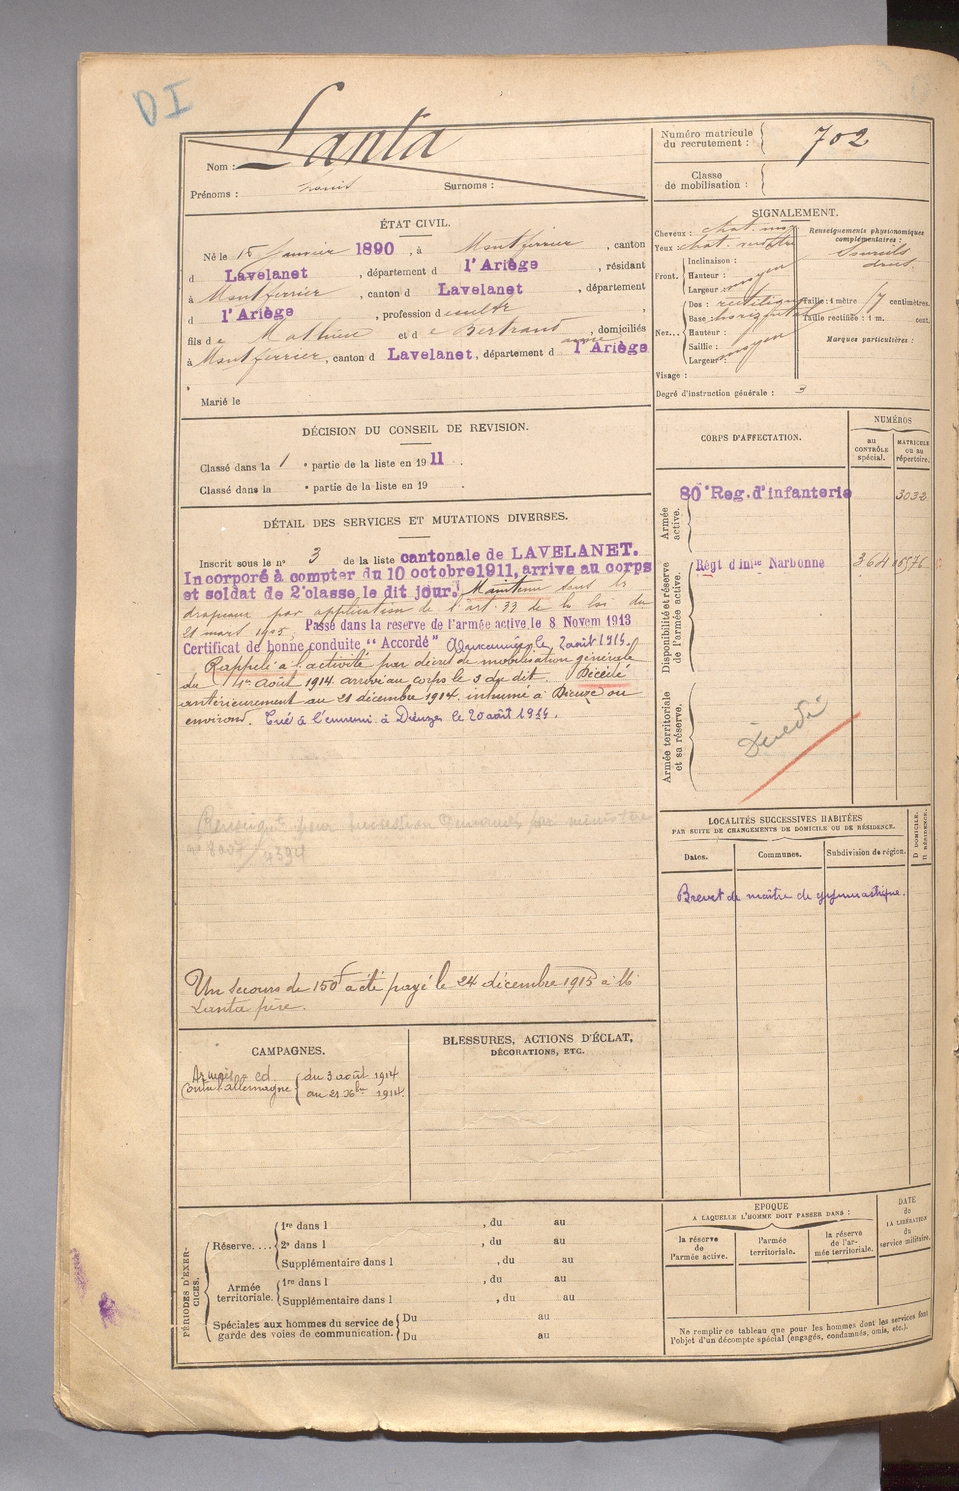 DI
Nom : Lanta
Prénoms : Louis Surnoms :
Numéro matricule du recrutement : 702
Classe de mobilisation :
ÉTAT CIVIL.
Né le 15 janvier 1890, à Montferrier, canton
d Lavelanet, département d l'Ariège, résidant
à Montferrier, canton d Lavelanet, département
d l'Ariège, profession d
fils de Mathieu et de Bertrand, domiciliés
à Montferrier, canton d Lavelanet, département d l'Ariège
Marié le
SIGNALEMENT.
Cheveux : chat.
Yeux chat.
Front. Inclinaison :
Hauteur :
Largeur : moyen
Nez... Dos : rectiligne
Base horizontal
Hauteur :
Saillie :
Largeur : moyen
Visage :
Renseignements physionomiques complémentaires :
Sourcils droits
Taille : 1 mètre centimètres.
Taille rectifiée : 1 m. cent.
Marques particulières :
Degré d'instruction générale : 3
DÉCISION DU CONSEIL DE REVISION.
Classé dans la 1 e partie de la liste en 1911.
Classé dans la e partie de la liste en 19 .
DÉTAIL DES SERVICES ET MUTATIONS DIVERSES.
Inscrit sous le n° 3 de la liste cantonale de LAVELANET.
Incorporé à compter du 10 octobre 1911, arrive au corps
et soldat de 2e classe, le dit jour. Maintenu dans les
drapeaux par application de l'art. 33 de la loi du
21 mars 1905, Passé dans la reserve de l'armée active, le 8 Novem 1913
Certificat de bonne conduite "Accordé" le 2 août 1914.
Rappelé à l'activité par décret de mobilisation générale
du 1er août 1914. arrivé au corps le 3 du dit. Décédé
antérieurement au 21 décembre 1914. inhumé à Bieuze ou
environs. Tué à l'ennemi à Dieuze le 20 août 1914.
pour succession par ministre
4394
Un secours de 150f a été payé le 24 décembre 1915 à M
Lanta père.
CORPS D'AFFECTATION.
NUMÉROS
au CONTRÔLE spécial.
MATRICULE ou au répertoire.
Armée active.
80e Reg. d'infanterie 3032
Disponibilité et réserve de l'armée active.
Régt d'Infie Narbonne 364
Armée territoriale et sa réserve.
Décédé
LOCALITÉS SUCCESSIVES HABITÉES
PAR SUITE DE CHANGEMENTS DE DOMICILE OU DE RÉSIDENCE.
Dates. Communes. Subdivision de région.
D DOMICILE. R RÉSIDENCE.
Brevet de maître de gymnastique.
CAMPAGNES.
contre l'allemagne
du 3 août 1914
au 21 Xbre 1914.
BLESSURES, ACTIONS D'ÉCLAT,
DÉCORATIONS, ETC.
PÉRIODES D'EXERCICES.
Réserve....
1re dans l , du au
2e dans l , du au
Supplémentaire dans l , du au
Armée territoriale.
1re dans l , du au
Supplémentaire dans l , du au
Spéciales aux hommes du service de garde des voies de communication.
Du au
Du au
EPOQUE
A LAQUELLE L'HOMME DOIT PASSER DANS :
la réserve de l'armée active.
l'armée territoriale.
la réserve de l'armée territoriale.
DATE de LA LIBÉRATION du service militaire.
Ne remplir ce tableau que pour les hommes dont les services font
l'objet d'un décompte spécial (engagés, condamnés, omis, etc.).